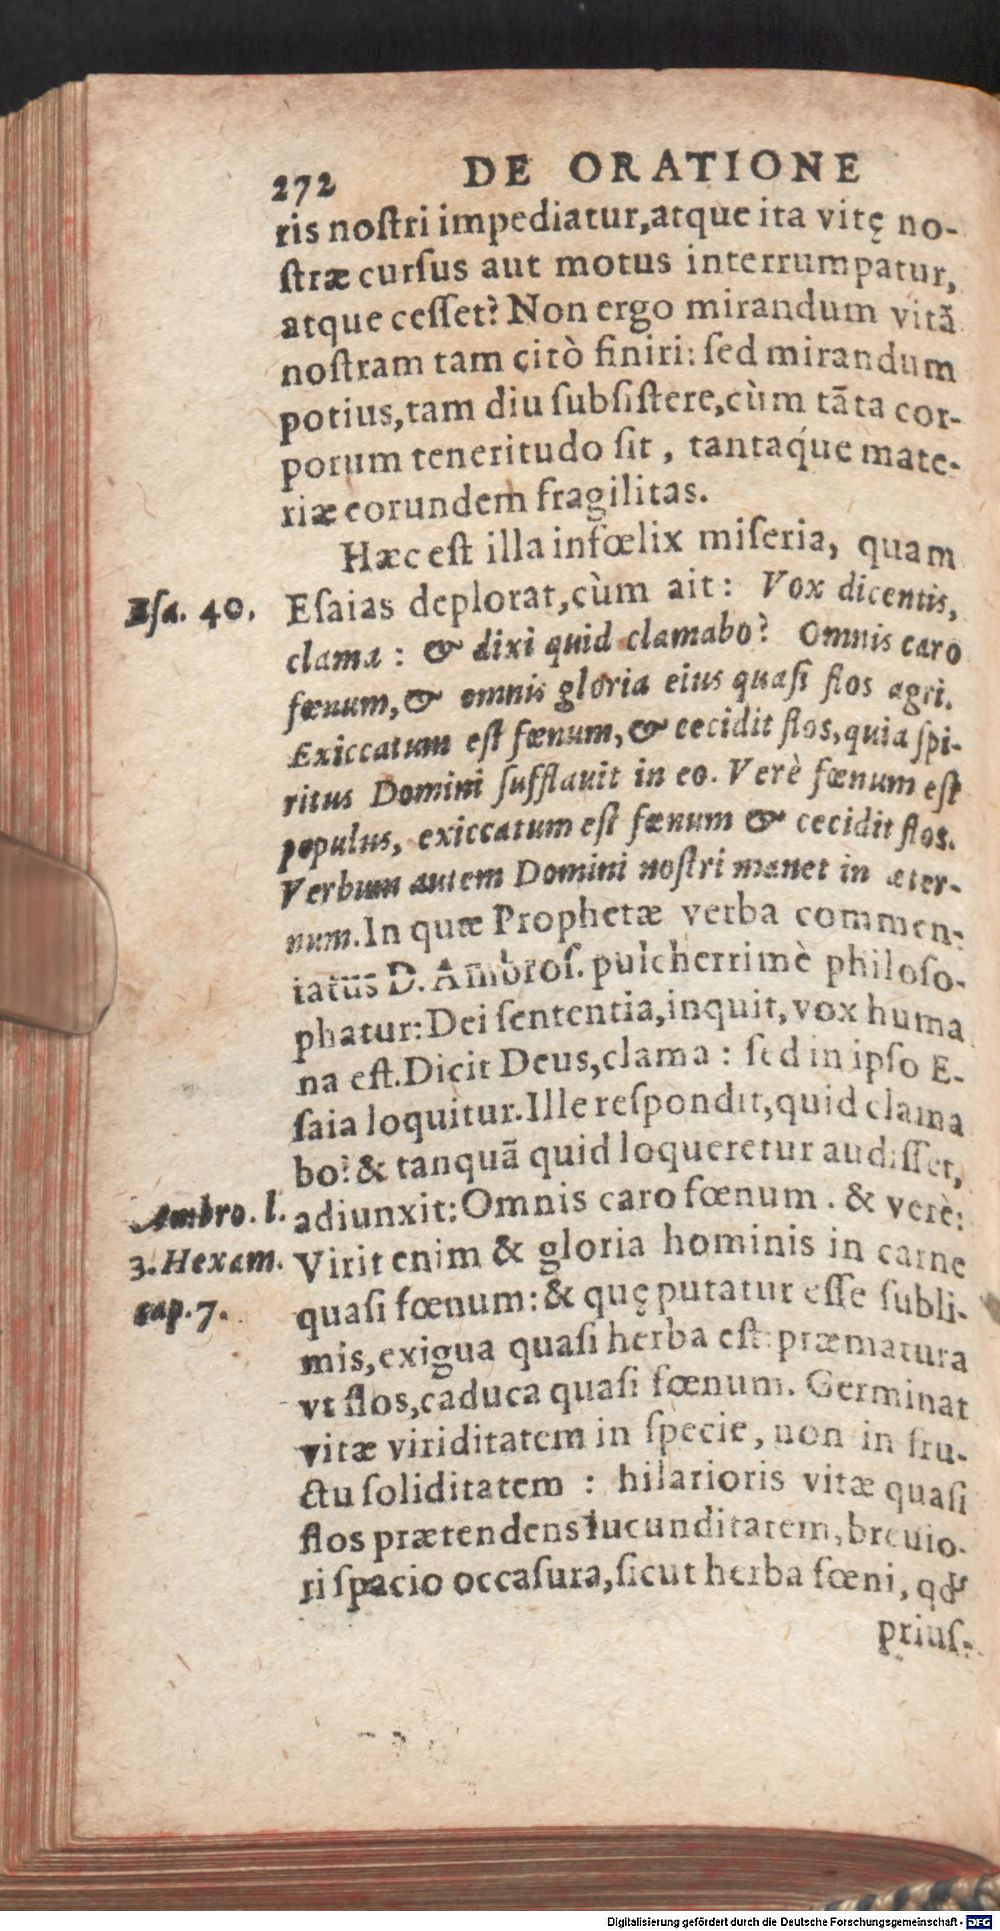 272 DE ORATIONE
ris noſtri impediatur,atque ita vitę no-
ſtræ curſus aut motus interrumpatur,
atque ceſſet? Non ergo mirandum vitã
noſtram tam citò finiri: ſed mirandum
potius,tam diu ſubſiſtere,cùm tãta cor-
porum teneritudo ſit, tantaq́ue mate-
riæ eorundem fragilitas.
Hæc eſt illa infœlix miſeria, quam
Eſa. 40. Eſaias deplorat,cùm ait: Vox dicentis,
clama: & dixi quid clamabo? Omnis caro
fœnum,& omnis gloria eius quaſi flos agri.
Exiccatum eſt fœnum,& cecidit flos,quia ſpi-
ritus Domini ſufflauit in eo. Verè fœnum eſt
populus, exiccatum eſt fœnum & cecidit flos.
Verbum autem Domini noſtri manet in æter-
num.In quæ Prophetæ verba commen-
tatus D. Ambroſ. pulcherrimè philoſo-
phatur:Dei ſententia,inquit,vox huma
na eſt.Dicit Deus,clama: ſed in ipſo E-
ſaia loquitur.Ille reſpondit,quid clama
bo? & tanquã quid loqueretur audiſſet,
Ambro. l. adiunxit:Omnis caro fœnum. & verè:
3. Hexam. Virit enim & gloria hominis in carne
cap.7. quaſi fœnum: & quę putatur eſſe ſubli-
mis,exigua quaſi herba eſt: præmatura
vt flos,caduca quaſi fœnum. Germinat
vitæ viriditatem in ſpecie, non in fru-
ctu ſoliditatem: hilarioris vitæ quaſi
flos prætendens iucunditatem,breuio-
ri ſpacio occaſura,ſicut herba fœni, qđ
priuſ-
Digitalisierung gefördert durch die Deutsche Forschungsgemeinschaft - DFG